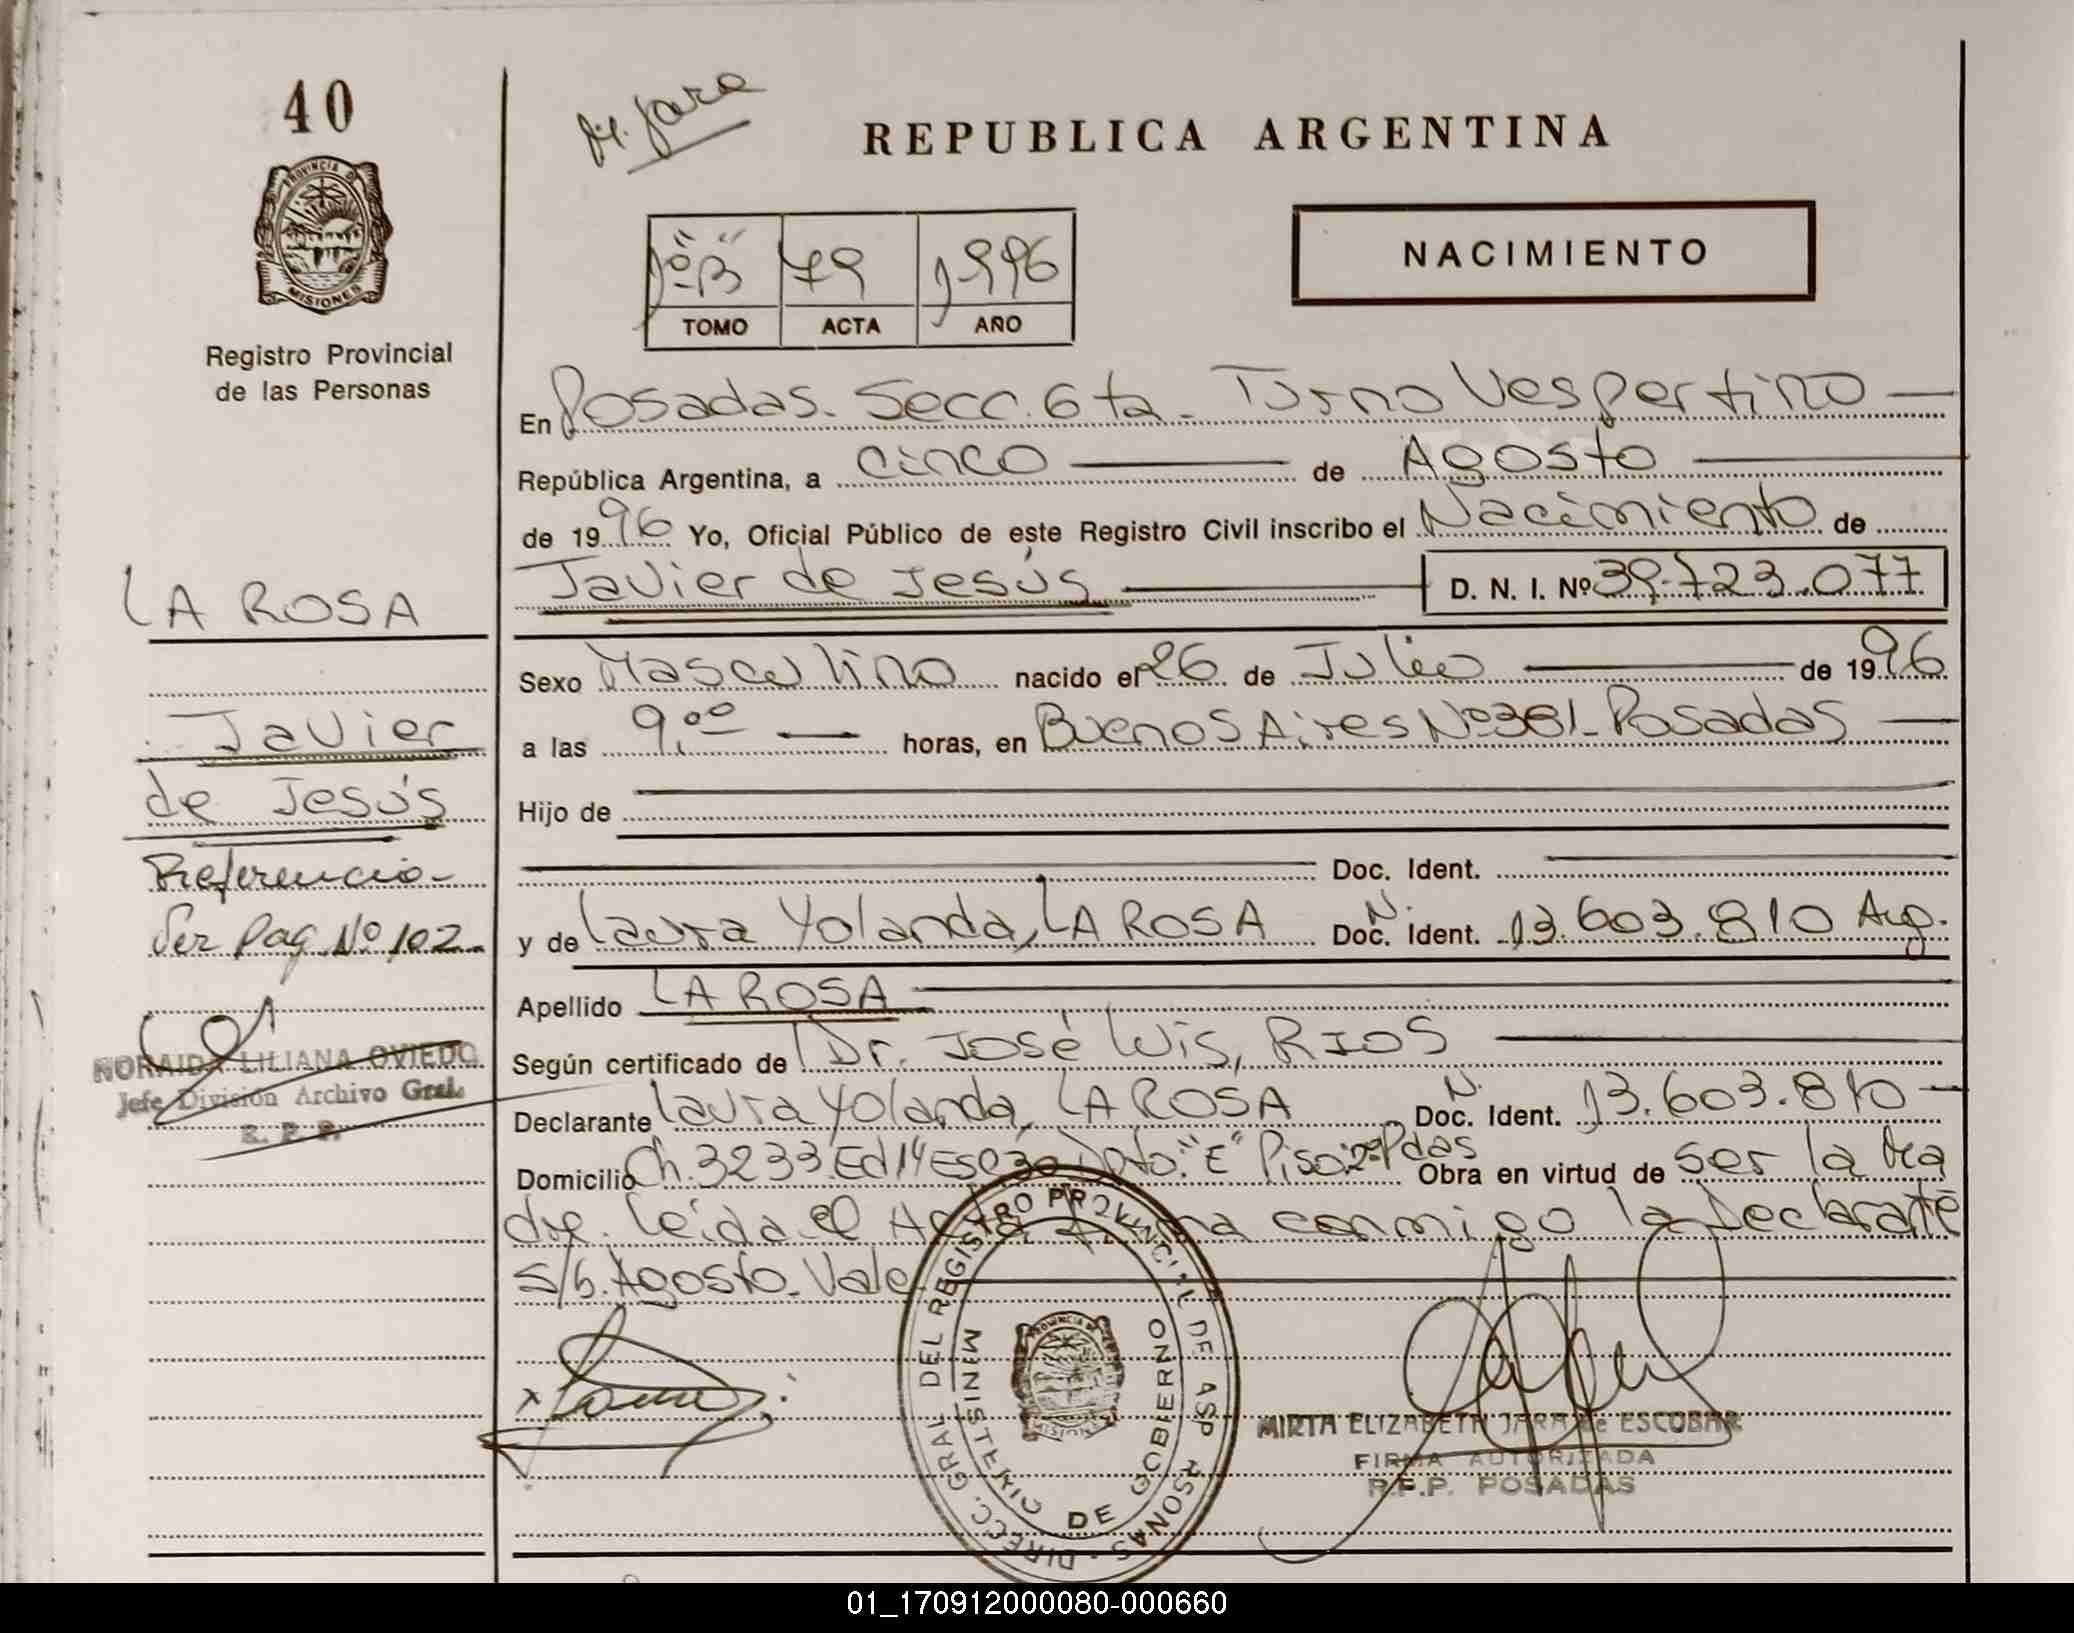 40
M. Jara
REPUBLICA ARGENTINA
PROVINCIA DE
MISIONES
Registro Provincial
de las Personas
1º "B" 79 1996
TOMO ACTA AÑO
NACIMIENTO
En Posadas. Secc. 6ta. Turno Vespertino
República Argentina, a cinco de Agosto
de 1996 Yo, Oficial Público de este Registro Civil inscribo el Nacimiento de
Javier de Jesús D. N. I. Nº 39.723.077
Sexo Masculino nacido el 26 de Julio de 1996
a las 9,00 horas, en Buenos Aires Nº 381 - Posadas
Hijo de
Doc. Ident.
y de Laura Yolanda, LA ROSA Doc. N. Ident. 13.603.810 Arg.
Apellido LA ROSA
Según certificado de Dr. José Luis, RIOS
Declarante Laura Yolanda, LA ROSA Doc. N. Ident. 13.603.810
Domicilio Ch. 3233 Ed 14 Dpto. "E" Piso: 2º Pdas Obra en virtud de ser la Ma
dre. Leída el Acta, Firma conmigo la Declarante
s/b. Agosto. Vale
LA ROSA
Javier
de Jesús
Referencia
Ver Pag. Nº 102
NORAIDA LILIANA OVIEDO
Jefe División Archivo Gral.
R. P. P.
DIRECC. GRAL DEL REGISTRO PROVINCIAL DE LAS PERSONAS
MINISTERIO DE GOBIERNO
MIRTA ELIZABETH JARA de ESCOBAR
FIRMA AUTORIZADA
R.P.P. POSADAS
01_170912000080-000660